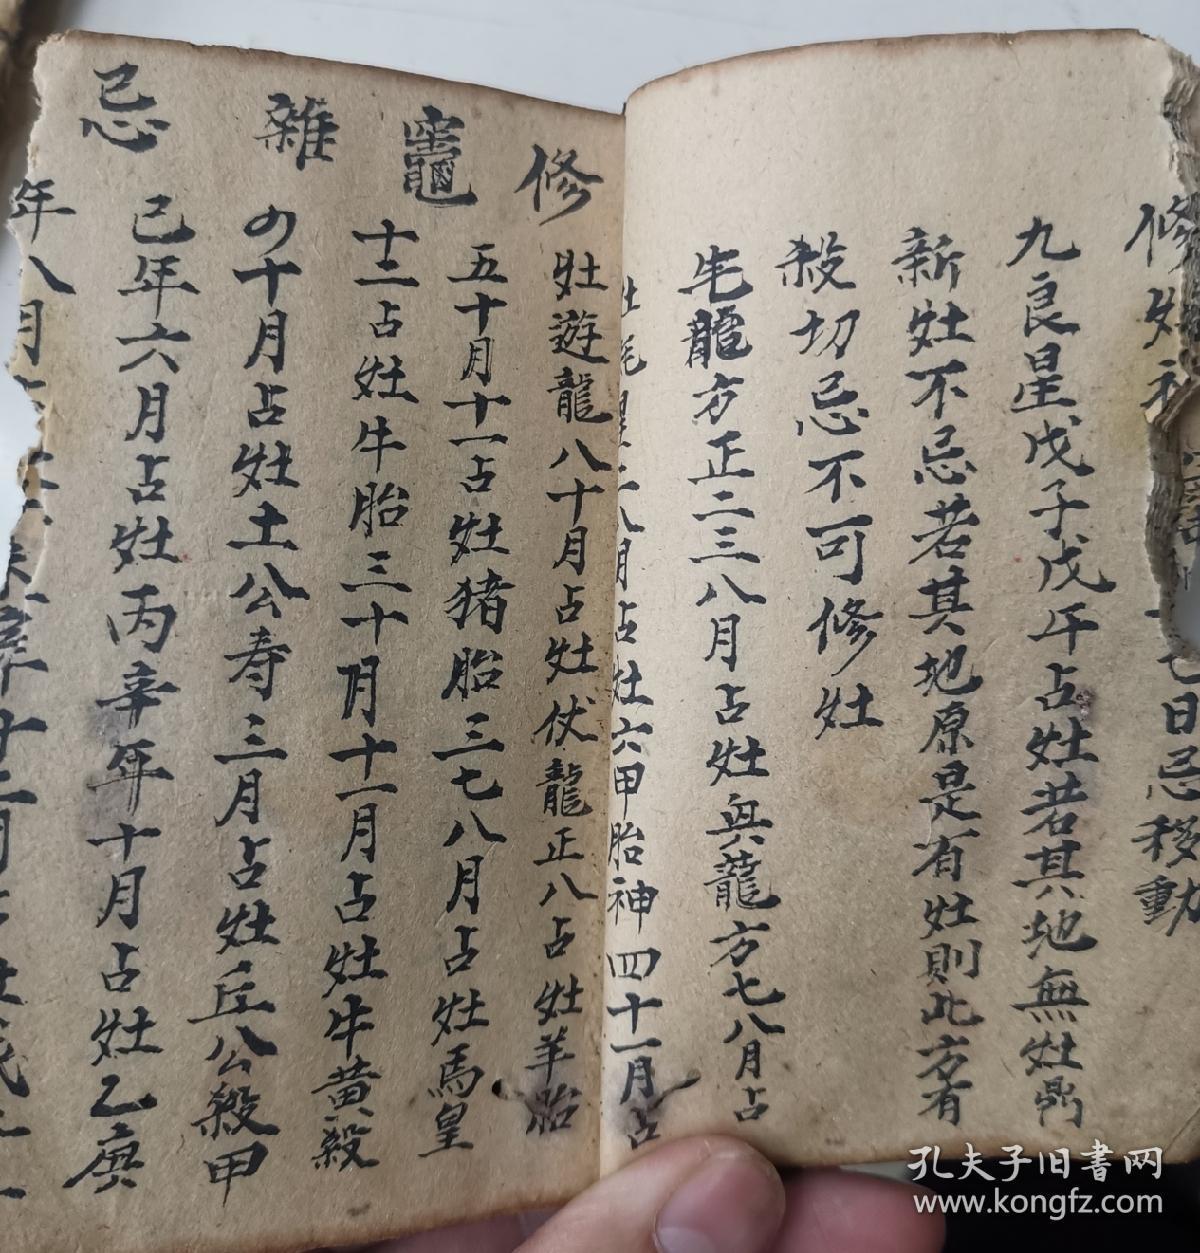 七日忌移動
九良星戊子戊午占灶若其地無灶鼎
新灶不忌若其地原是有灶則此方有
殺切忌不可修灶
龍方正二三八月占灶與龍方七八月占
八月占灶六甲胎神四十一月占
修竈雜忌
灶遊龍八十月占灶伏龍正八占灶羊胎
五十月十一占灶猪胎三七八月占灶馬皇
十二占灶牛胎三十月十一月占灶牛黄殺
の十月占灶土公寿三月占灶丘公殺甲
己年六月占灶丙辛年十月占灶乙庚
年八月
年十二月
孔夫子旧书网
www.kongfz.com